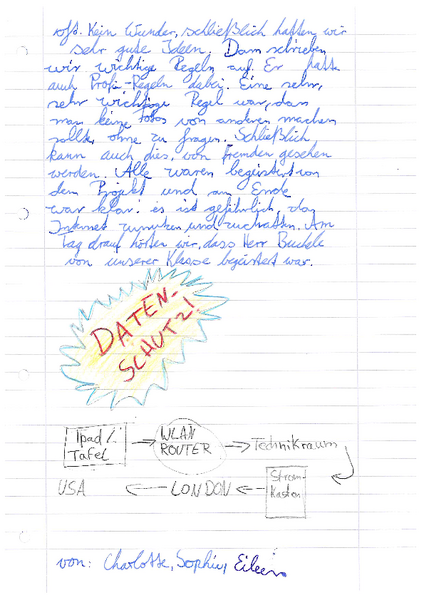 oft. Kein Wunder, schließlich hatten wir
sehr gute Ideen. Dann schrieben
wir wichtige Regeln auf. Er hatte
auch Profi-Regeln dabei. Eine sehr,
sehr wichtige Regel war, dass
man keine Fotos von anderen machen
sollte, ohne zu fragen. Schließlich
kann auch dies, von fremden gesehen
werden. Alle waren begeistert von
dem Projekt und am Ende
war klar: es ist gefährlich, das
Internet
Tag drauf hörten wir, dass Herr
von unserer Klasse begeistert war.
DATEN-
SCHUTZ!
Ipad /
Tafel
WLAN
ROUTER
Technikraum
Strom-
Kasten
LONDON
USA
von: Charlotte, Sophie, Eileen